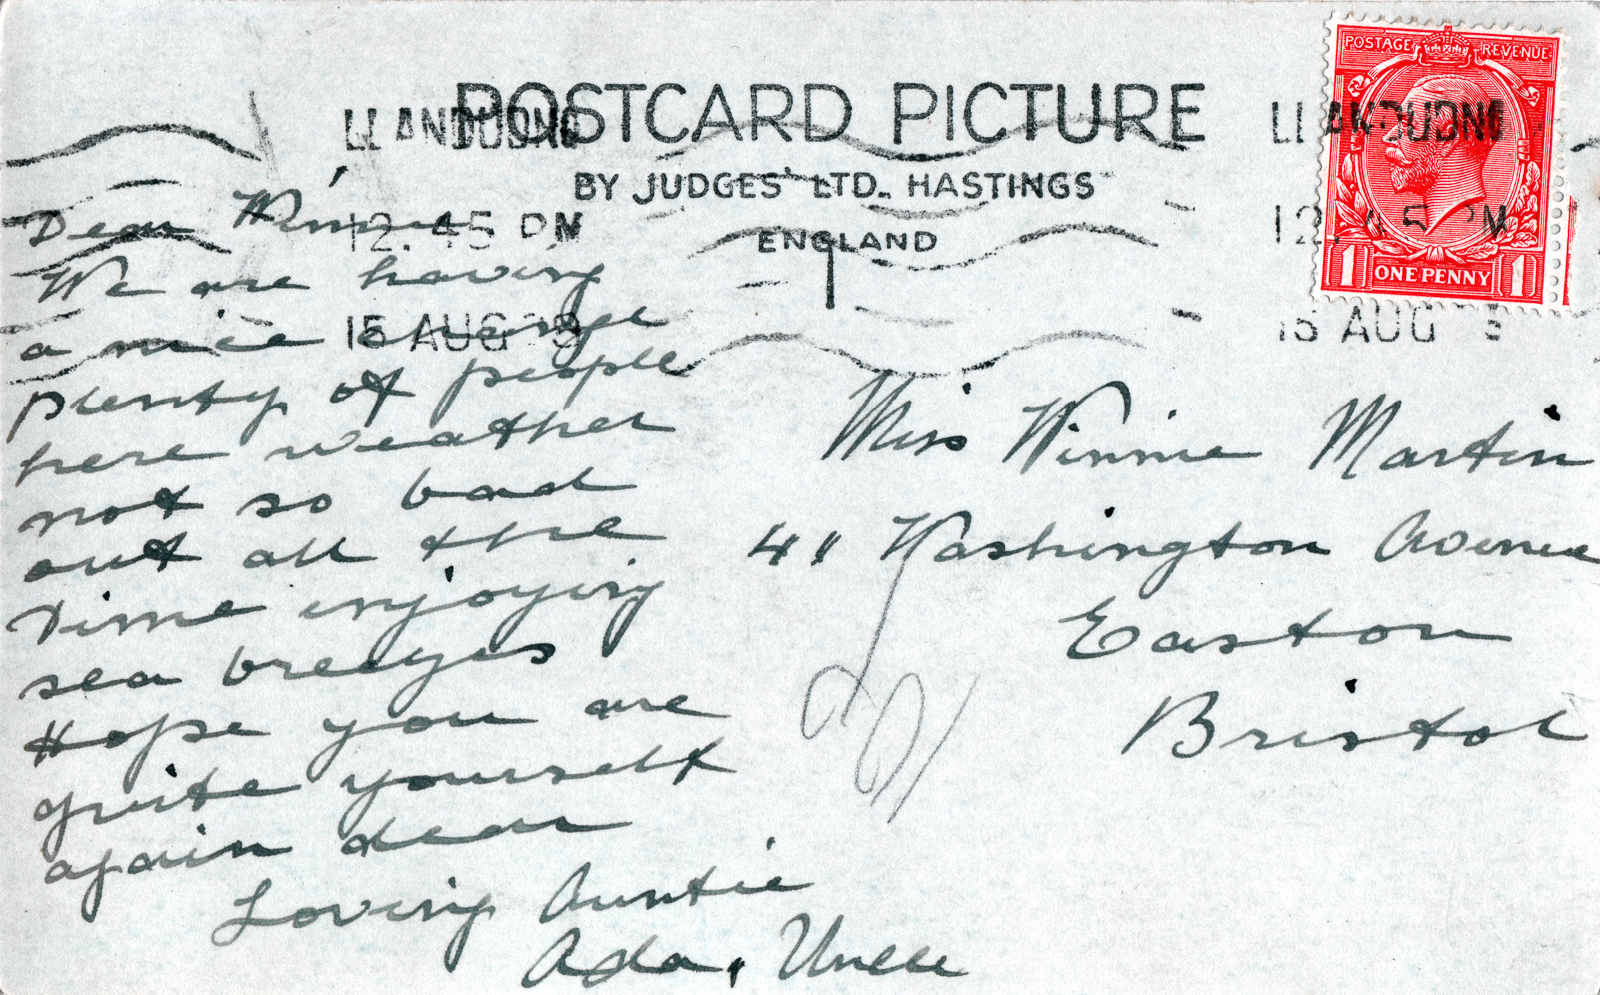 POSTCARD PICTURE
BY JUDGES' LTD. HASTINGS
ENGLAND
POSTAGE REVENUE
1 ONE PENNY 1
LLANDUDNO
12.45 PM
15 AUG
LLANDUDNO
12.45 PM
15 AUG
Dear Winnie
We are having
a nice change
plenty of people
here weather
not so bad
out all the
time enjoying
sea breezes
Hope you are
quite yourself
again dear
Loving Auntie
Ada, Uncle
Miss Winnie Martin
Washington Avenue
Easton
Bristol